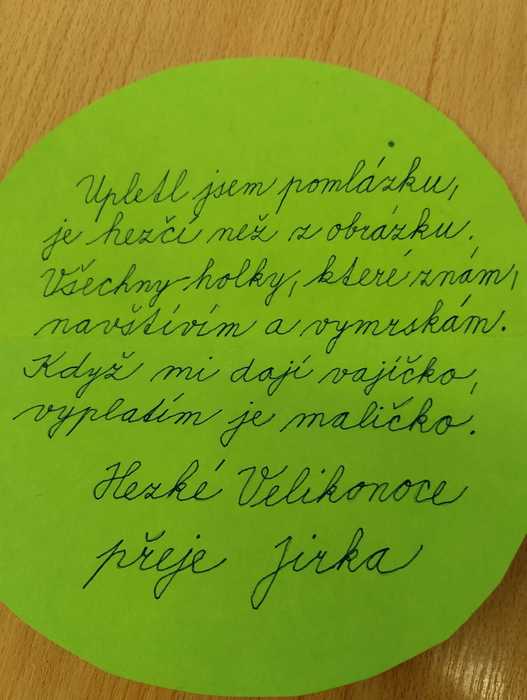 Upletl jsem pomlázku,
je hezčí než z obrázku.
Všechny holky, které znám,
navštívím a vymrskám.
Když mi dají vajíčko,
vyplatím je maličko.
Hezké Velikonoce
přeje Jirka